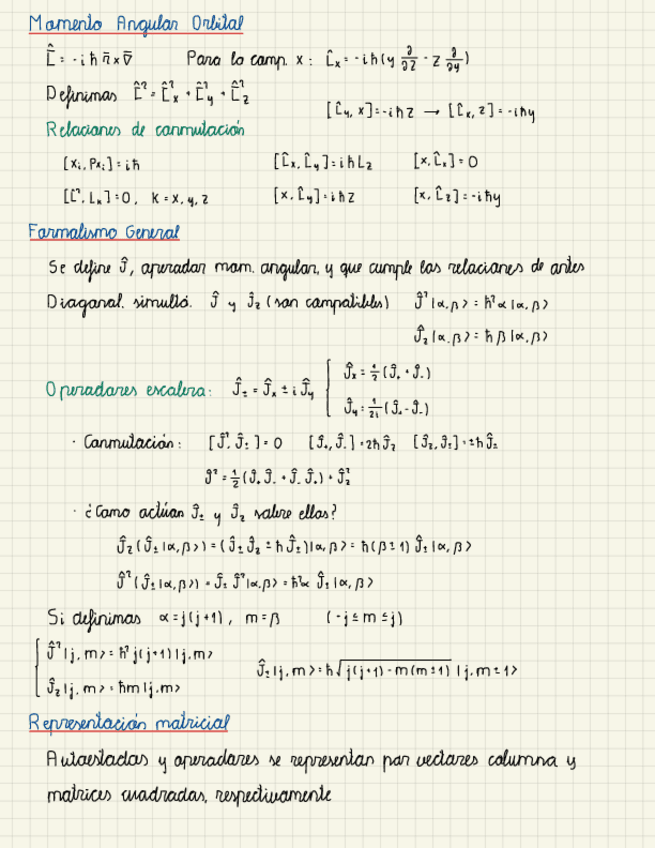 Momento Angular Orbital
L̂ = -iħ r̄ × ∇̄   Para la comp. x: L̂x = -iħ(y ∂/∂z - z ∂/∂y)
Definimos L̂² = L̂x² + L̂y² + L̂z²
[L̂y, x] = -iħz → [L̂x, z] = -iħy
Relaciones de conmutación
[xi, Pxi] = iħ   [L̂x, L̂y] = iħLz   [x, L̂x] = 0
[L̂², Lk] = 0, k = x, y, z   [x, L̂y] = iħz   [x, L̂z] = -iħy
Formalismo General
Se define Ĵ, operador mom. angular, y que cumple las relaciones de antes
Diagonal. simultá. Ĵ y Ĵz (son compatibles)   Ĵ²|α,β> = ħ²α|α,β>
Ĵz|α,β> = ħβ|α,β>
Operadores escalera: Ĵ± = Ĵx ± iĴy { Ĵx = 1/2 (Ĵ+ + Ĵ-)
Ĵy = 1/2i (Ĵ+ - Ĵ-)
· Conmutación: [Ĵ², Ĵ±] = 0   [Ĵ+, Ĵ-] = 2ħĴz   [Ĵz, Ĵ±] = ±ħĴ±
Ĵ² = 1/2 (Ĵ+Ĵ- + Ĵ-Ĵ+) + Ĵz²
· ¿Como actúan Ĵ± y Ĵz sobre ellos?
Ĵz(Ĵ±|α,β>) = (Ĵ±Ĵz ± ħĴ±)|α,β> = ħ(β±1)Ĵ±|α,β>
Ĵ²(Ĵ±|α,β>) = Ĵ±Ĵ²|α,β> = ħ²α Ĵ±|α,β>
Si definimos α = j(j+1), m = β   (-j ≤ m ≤ j)
{ Ĵ²|j,m> = ħ²j(j+1)|j,m>
Ĵz|j,m> = ħm|j,m>   Ĵ±|j,m> = ħ√(j(j+1) - m(m±1)) |j,m±1>
Representación matricial
Autoestados y operadores se representan por vectores columna y
matrices cuadradas, respectivamente